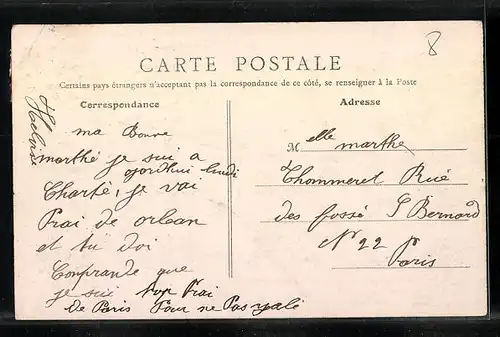 8
CARTE POSTALE
Certains pays étrangers n'acceptant pas la correspondance de ce côté, se renseigner à la Poste
Correspondance
Adresse
ma Bonne
marthé je sui a
ojordhui lundi
Charté, je vai
Prai de orlean
et tu doi
Conprande que
je sui Pop Prai
de Paris Pour ne Pas yalé
M elle marthe
Thommeret Rué
des fossé S Bernard
N° 22
Paris